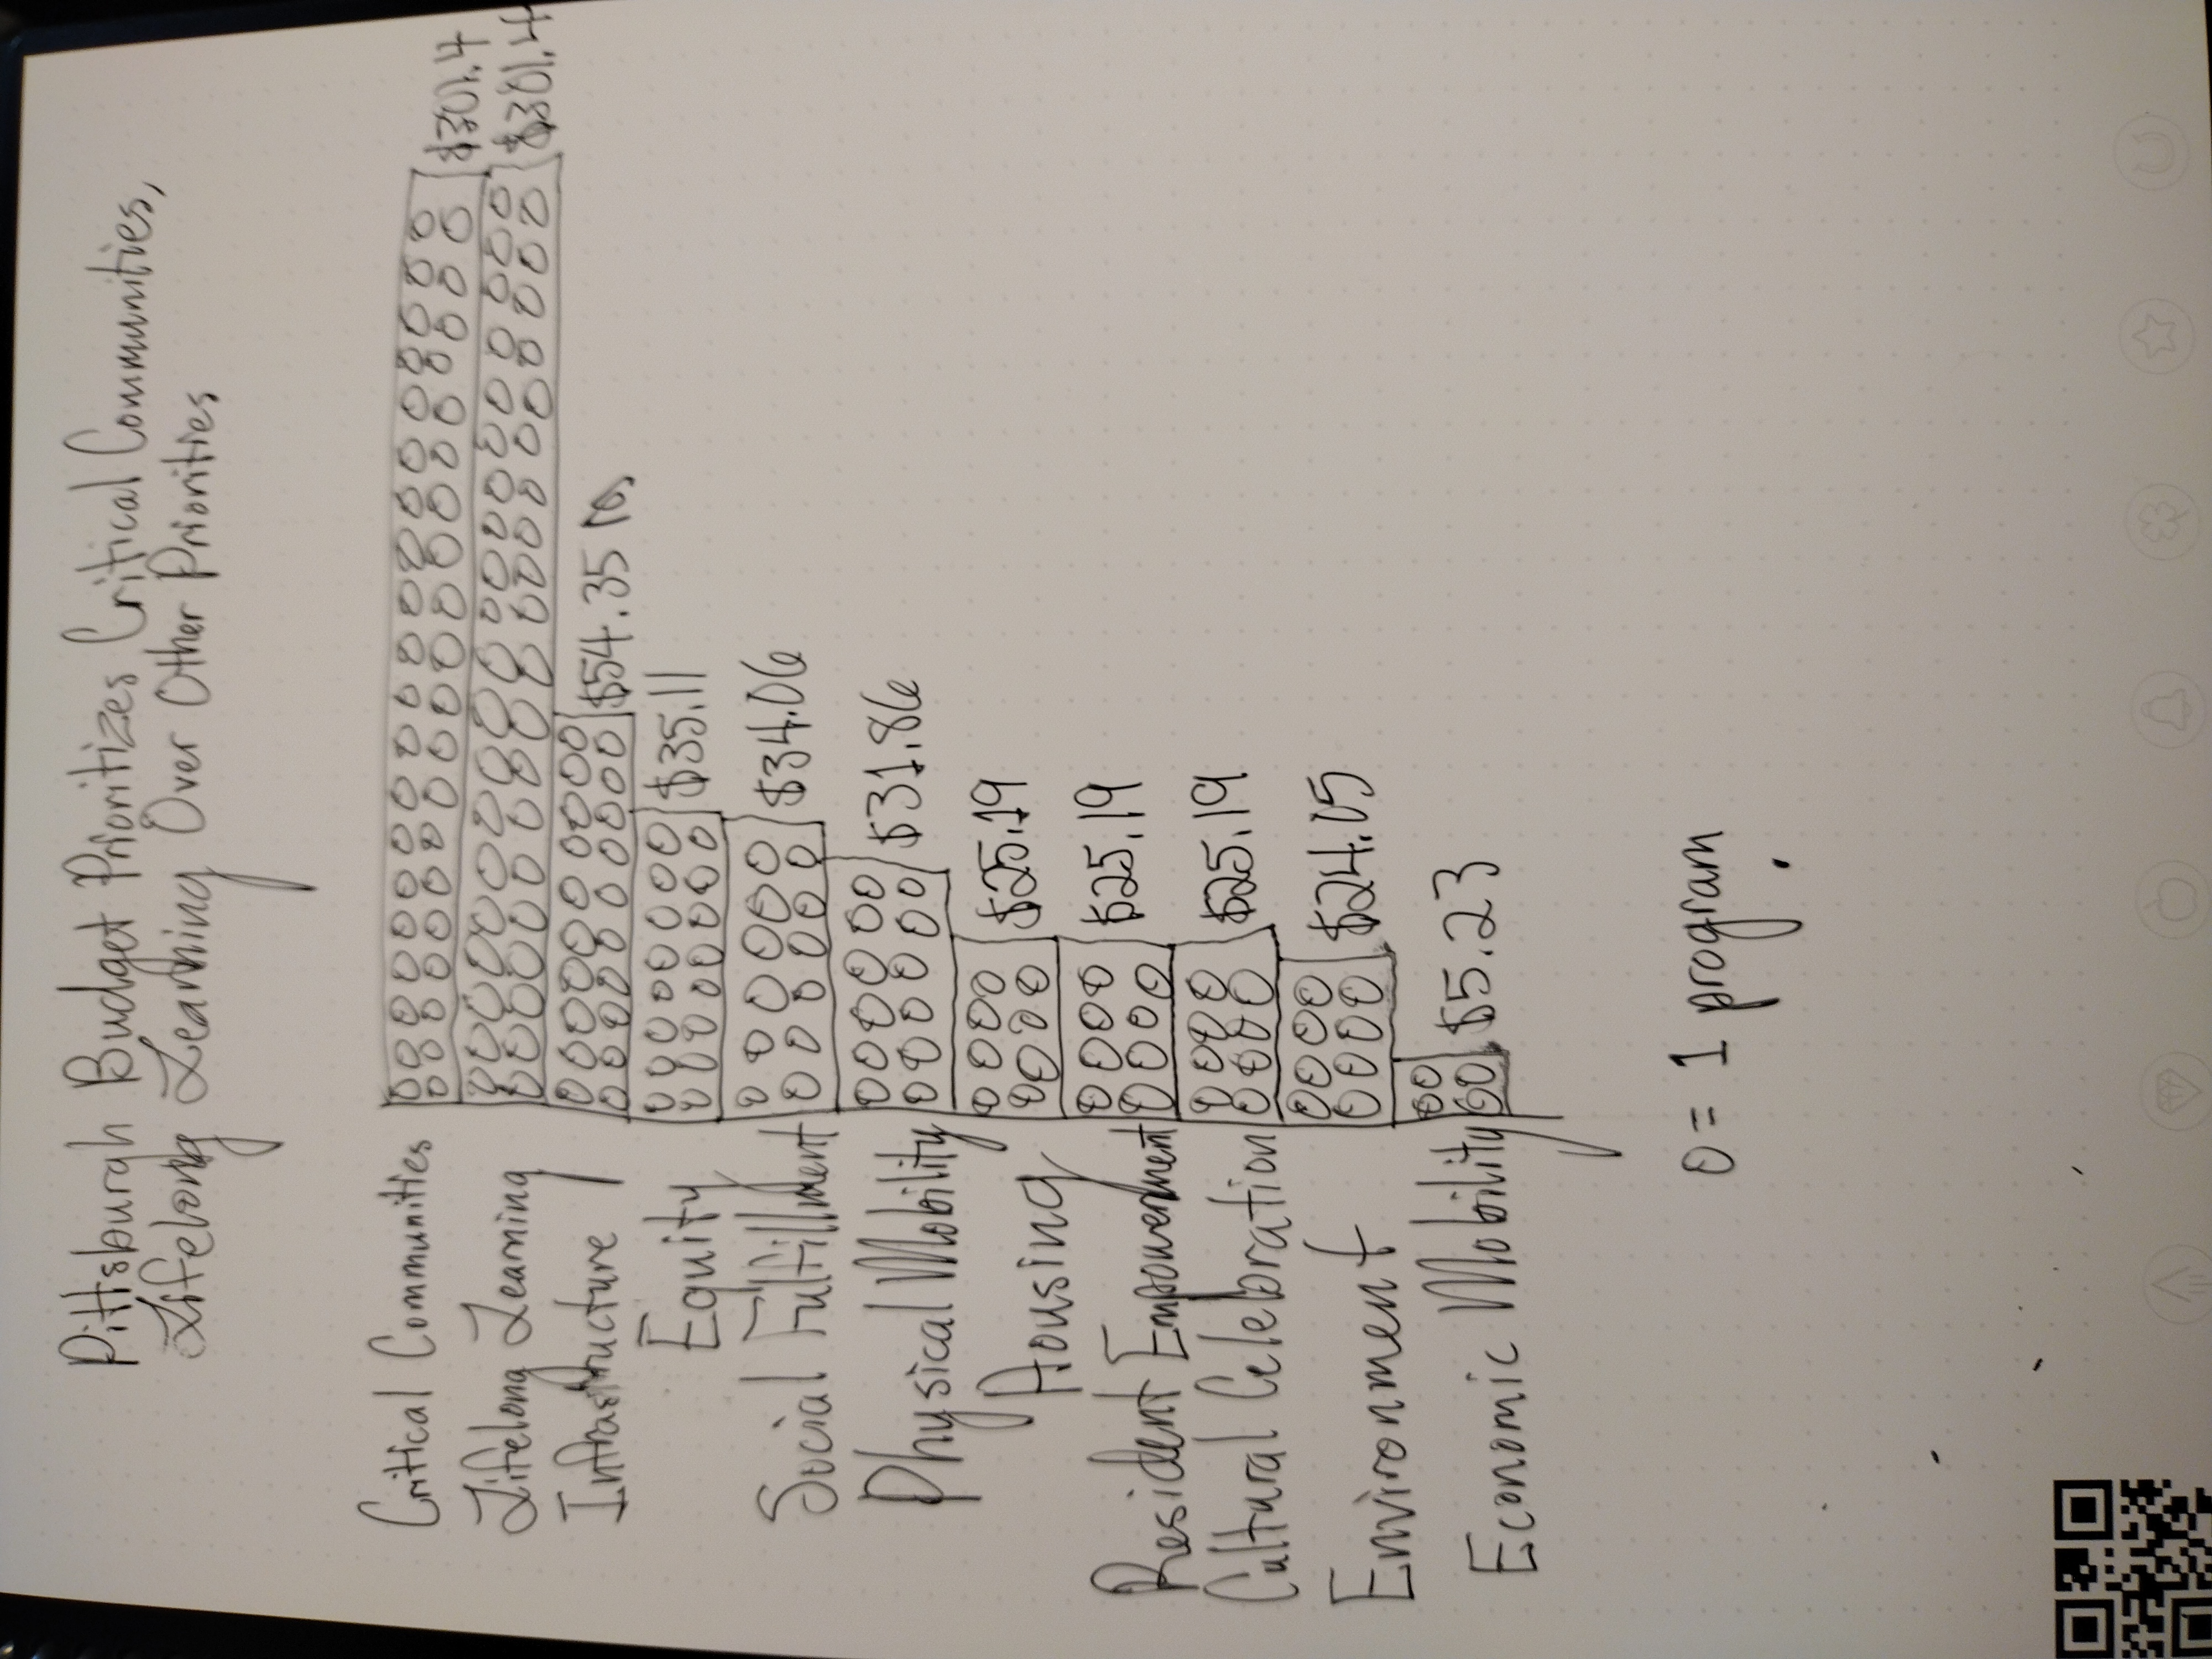 Pittsburgh Budget Prioritizes Critical Communities,
Lifelong Learning Over Other Priorities
Critical Communities $301.4
Lifelong Learning $301.4
Infrastructure $54.35
Equity $35.11
Social Fulfillment $34.06
Physical Mobility $31.86
Housing $25.19
Resident Empowerment $25.19
Cultural Celebration $25.19
Environment $24.05
Economic Mobility $5.23
0 = 1 program